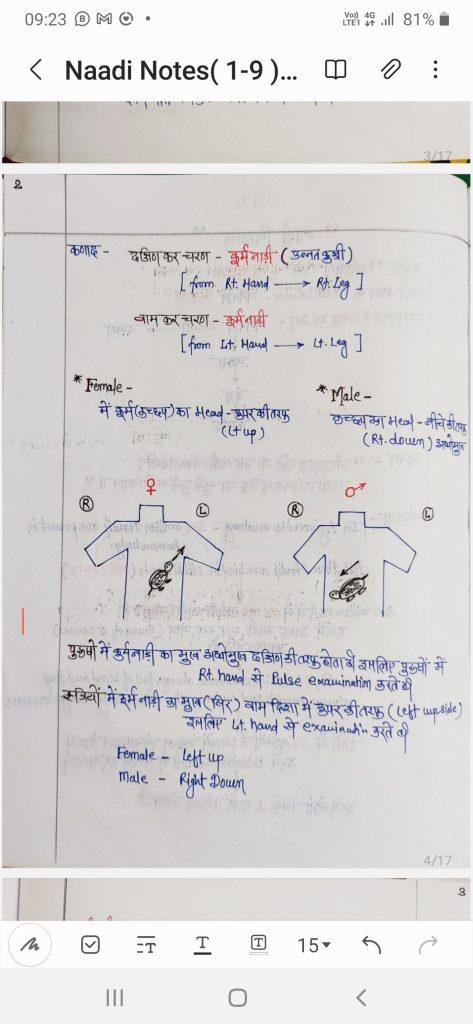 09:23
Vo)) 4G
LTE1
81%
Naadi Notes( 1-9 )...
3/17
2
कणाद - दक्षिण कर चरण - कूर्म नाड़ी (उन्नत कुक्षी)
[from Rt. Hand → Rt. leg]
वाम कर चरण - कूर्म नाड़ी
[from Lt. Hand → Lt. Leg]
* Female -
में कूर्म (कच्छप) का Head - ऊपर की तरफ
(Lt up)
* Male -
कच्छप का Head - नीचे की तरफ
(Rt. down) अधोमुख
♀
♂
R
L
R
L
पुरुषों में कूर्म नाड़ी का मुख अधोमुख दक्षिण की तरफ होता है इसलिए पुरुषों में
Rt. hand से Pulse examination करते है
स्त्रियों में कूर्म नाड़ी का मुख (सिर) वाम दिशा में ऊपर की तरफ (left upside)
इसलिए Lt. hand से examination करते है
Female - Left up
Male - Right Down
4/17
3
T
T
T
15